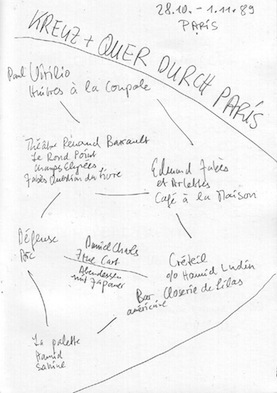 28.10. - 1.11.89
PARIS
KREUZ + QUER DURCH PARIS
Paul Virilio
Huitres à la Coupole
Théâtre Renaud Barrault
Le Rond Point
Champs Elysées
Jabès Question du Livre
Edmond Jabès
et Arlette
Café à la Maison
Défense
Arc
Daniel Charles
7 rue
Abendessen
mit Japaner
Créteil
c/o Hamid
Closerie de Lilas
Bar
américaine
La palette
Hamid
Sabine